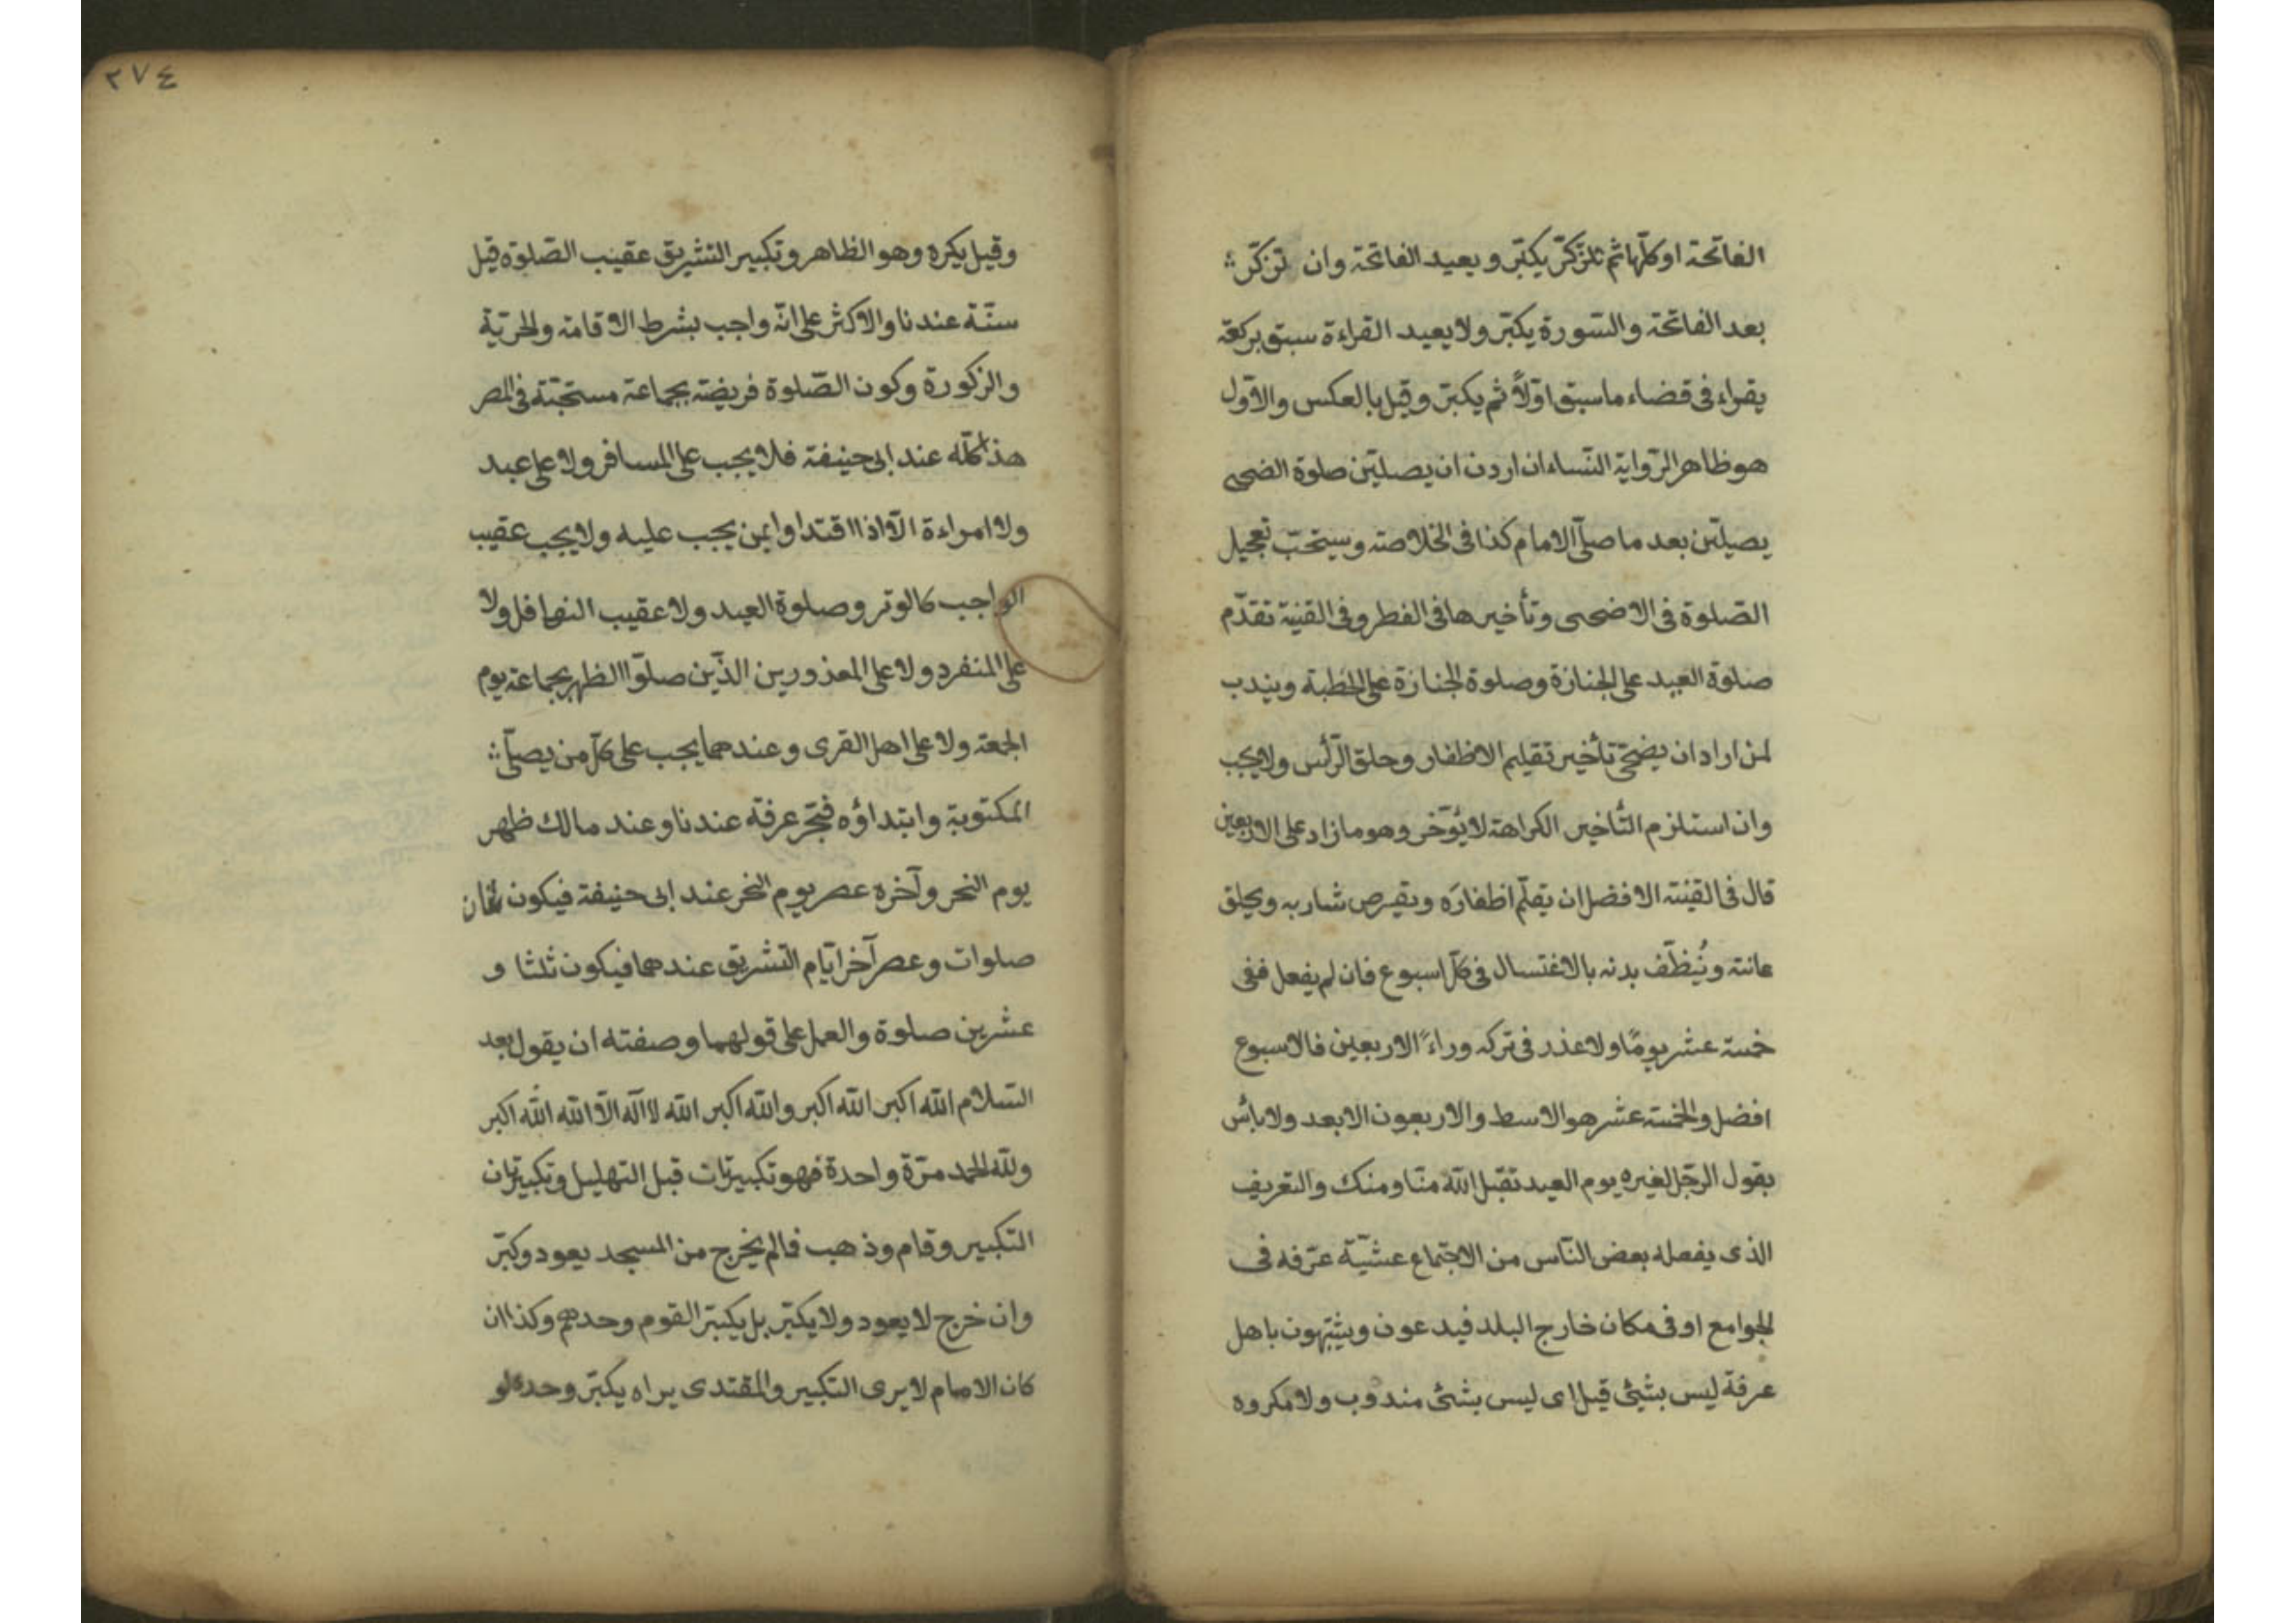 الفاتحة او كلّها ثم تلزكّر يكبّر و يعيد الفاتحة وان تزكّر
بعد الفاتحة والسّورة يكبّر ولا يعيد القراءة سبق بركعة
يقراء فى قضاء ما سبق اوّلاً ثم يكبّر وقيل بالعكس والاوّل
هو ظاهر الرّواية النّساء ان اردن ان يصلّين صلوة الضحى
يصيلّن بعد ما صلّى الامام كذا فى الخلاصته وسيتحبّ تعجيل
الصّلوة فى الاضحى وتأخيرها فى الفطر وفى القنية تقدّم
صلوة العيد على الجنازة وصلوة الجنازة على الخطبة ويندب
لمن اراد ان يضحّى تأخير تقليم الاظفار وحلق الرّأس ولا يجب
وان استلزم التّأخير الكراهة لا يؤخّر وهو ما زاد على الاربعين
قال فى القينته الافضل ان يقلّم اظفارَه ويقصرص شاربه ويحلق
عانته ويُنظّف بدنه بالاغتسال فى كلّ اسبوع فان لم يفعل ففى
خمسة عشر يومًا ولا عذر فى تركه وراءً الاربعين فالاسبوع
افضل والخمسة عشر هو الاسط والاربعون الابعد ولا بأس
بقول الرّجل لغيره يوم العيد تقبّل الله منّا ومنك والتعريف
الذى يفعله بعض النّاس من الاجتماع عشيّة عرّفه فى
الجوامع او فى مكان خارج البلد فيدعون ويشبّهون باهل
عرفة ليس بشئ قيل اى ليس بشئ مندوب ولا مكروه
٢٧٤
وقيل يكره وهو الظاهر وتكبير التشريق عقيب الصّلوة قيل
سنّة عندنا والاكثر على انّه واجب بشرط الاقامة والحرّية
والزكورة وكون الصّلوة فريضة بجماعة مستحبّة فى المصر
هذا كلّه عند ابى حنيفة فلا يجب على المسافر ولا على عبد
ولا امراءة الّا اذا اقتداوا بمن يجب عليه ولا يجب عقيب
الواجب كالوتر وصلوة العيد ولا عقيب النهافل ولا
على المنفرد ولا على المعذورين الذّين صلّوا الظهر بجماعة يوم
الجمعة ولا على اهل القرى وعندهما يجب على كلّ من يصلّى
المكتوبة وابتداؤه فجّر عرفة عندنا وعند مالك ظهر
يوم النحر وآخره عصر يوم النحر عند ابى حنيفة فيكون ثمان
صلوات وعصر آخر ايّام التّشريق عندهما فيكون ثلثا و
عشرين صلوة والعمل على قولهما وصفته ان يقول بعد
السّلام الله اكبر الله اكبر والله اكبر الله لا اله الّا الله الله اكبر
ولله الحمد مرّة واحدة فهو تكبيرّات قبل التهليل وتكبيرّان
التكبير وقام وذهب فالم يخرج من المسجد يعود وكبّر
وان خرج لا يعود ولا يكبّر بل يكبّر القوم وحدهم وكذا ان
كان الامام لا يرى التكبير والمقتدى يراه يكبّر وحده لو